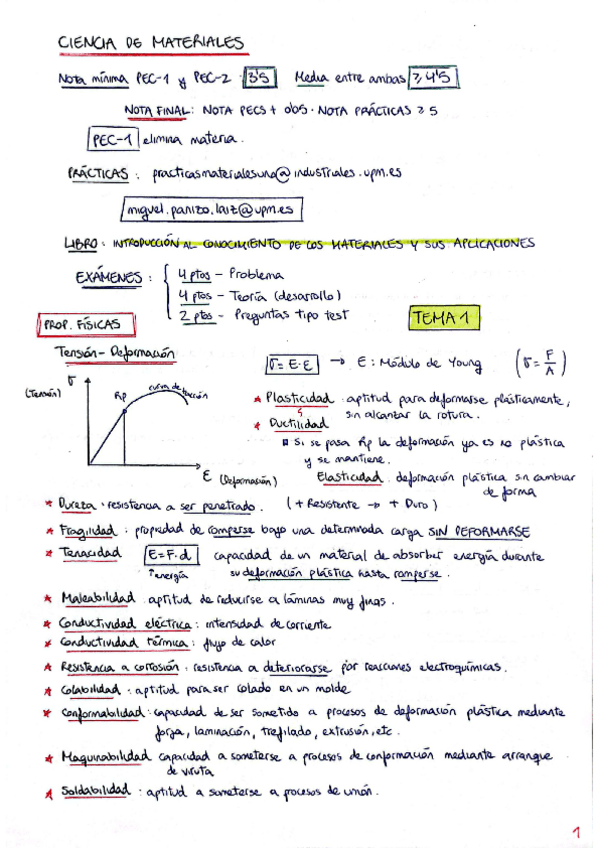 CIENCIA DE MATERIALES
Nota mínima PEC-1 y PEC-2 : 3'5 Media entre ambas ≥ 4'5
NOTA FINAL: NOTA PECS + 0'05 · NOTA PRÁCTICAS ≥ 5
PEC-1 elimina materia.
PRÁCTICAS : practicasmaterialesuna@industriales.upm.es
miguel.panizo.laiz@upm.es
LIBRO: INTRODUCCIÓN AL CONOCIMIENTO DE LOS MATERIALES Y SUS APLICACIONES
EXÁMENES : { 4 ptos - Problema
4 ptos - Teoría (desarrollo)
2 ptos - Preguntas tipo test
TEMA 1
PROP. FÍSICAS
Tensión - Deformación
σ = E·ε → E : Módulo de Young (σ = F/A)
σ
(Tensión)
Rp
curva de tracción
ε (Deformación)
* Plasticidad : aptitud para deformarse plásticamente, sin alcanzar la rotura.
* Ductilidad
Si se pasa Rp la deformación ya es no plástica
y se mantiene.
Elasticidad : deformación plástica sin cambiar
de forma
* Dureza : resistencia a ser penetrado. (+ Resistente → + Duro)
* Fragilidad : propiedad de romperse bajo una determinada carga SIN DEFORMARSE
* Tenacidad E = F·d capacidad de un material de absorber energía durante
↑ energía su deformación plástica hasta romperse.
* Maleabilidad : aptitud de reducirse a láminas muy finas.
* Conductividad eléctrica : intensidad de corriente
* Conductividad térmica : flujo de calor
* Resistencia a corrosión : resistencia a deteriorarse por reacciones electroquímicas.
* Colabilidad : aptitud para ser colado en un molde
* Conformabilidad : capacidad de ser sometido a procesos de deformación plástica mediante
forja, laminación, trefilado, extrusión, etc.
* Maquinabilidad capacidad a someterse a procesos de conformación mediante arranque
de viruta
* Soldabilidad : aptitud a someterse a procesos de unión.
1